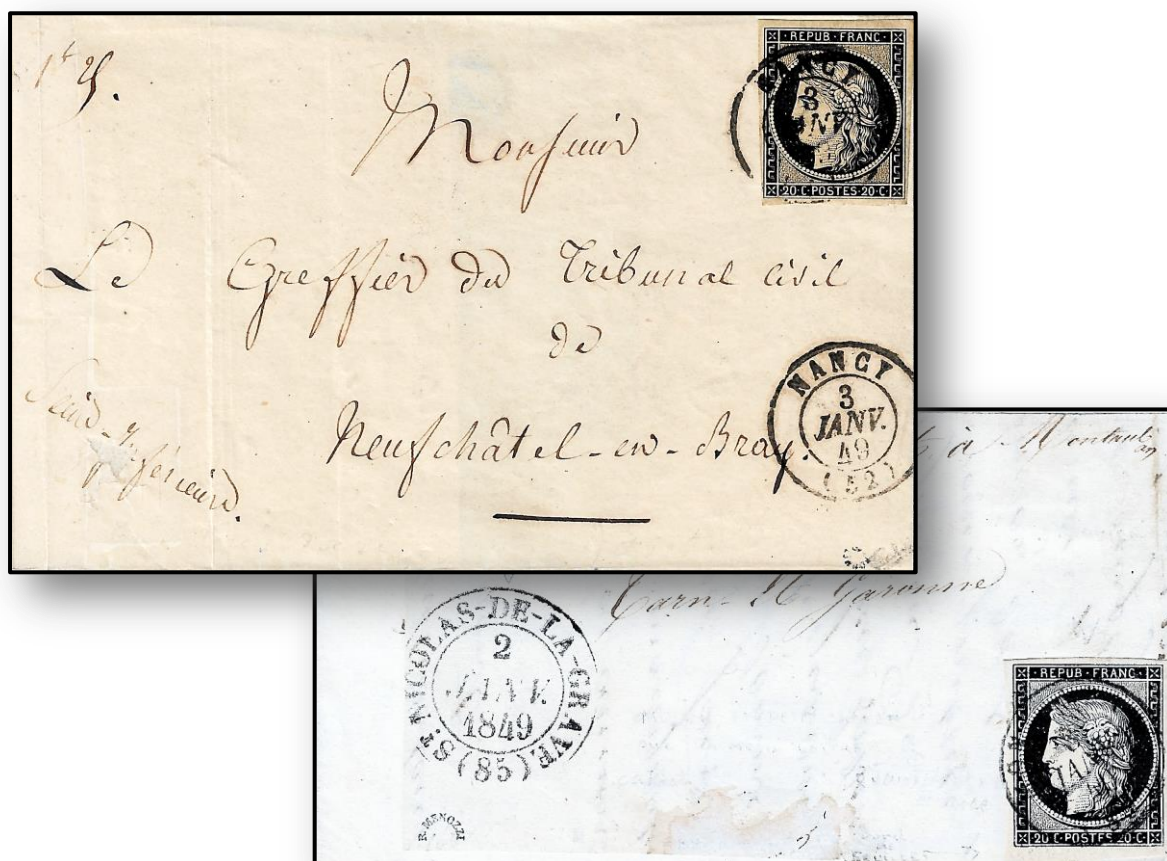 REPUB·FRANC·
NANCY
3
JANV
20·C·POSTES·20·C·
Monsieur
Le Greffier du Tribunal civil
de
Neufchâtel-en-Bray.
Seine-Inférieure.
NANCY
3
JANV.
49
(52)
à Montauban
Tarn-&-Garonne
ST NICOLAS-DE-LA-GRAVE
2
JANV.
1849
(85)
REPUB·FRANC·
JANV
20·C·POSTES·20·C·
R. MENOZZI